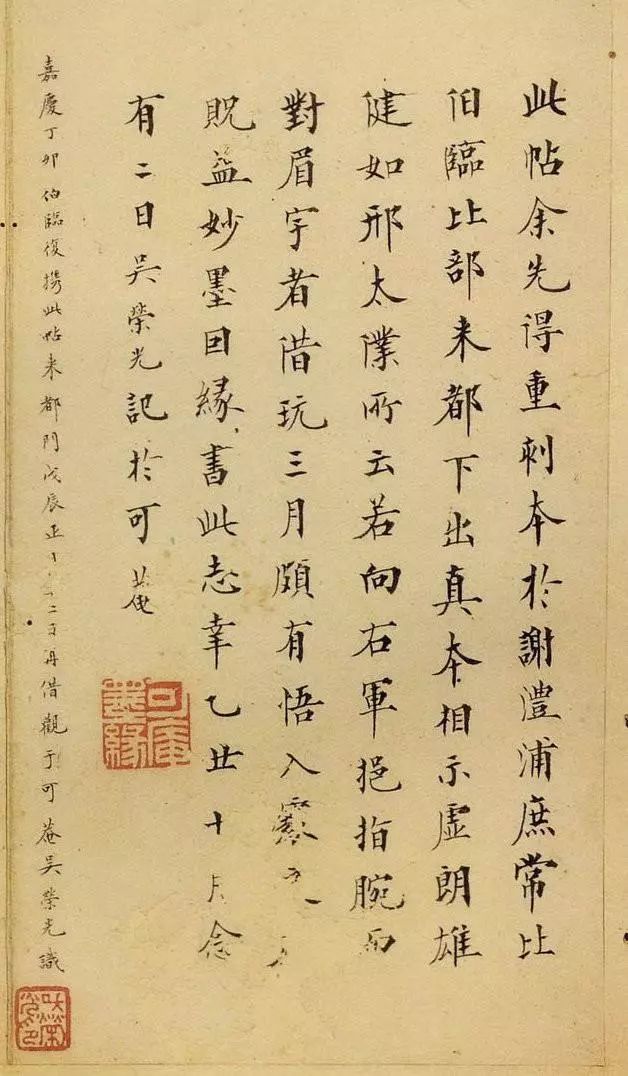 此帖余先得重刻本於謝澧浦庶常比
伯臨比部来都下出真本相示虛朗雄
健如邢太僕所云若向右軍挹指腕而
對眉宇者借玩三月頗有悟入處
貺益妙墨因緣書此志幸乙丑十月念
有二日吳榮光記於可菴
可庵墨緣
嘉慶丁卯伯臨復攜此帖来都門戊辰正二日再借觀于可菴吳榮光識
吳榮光印